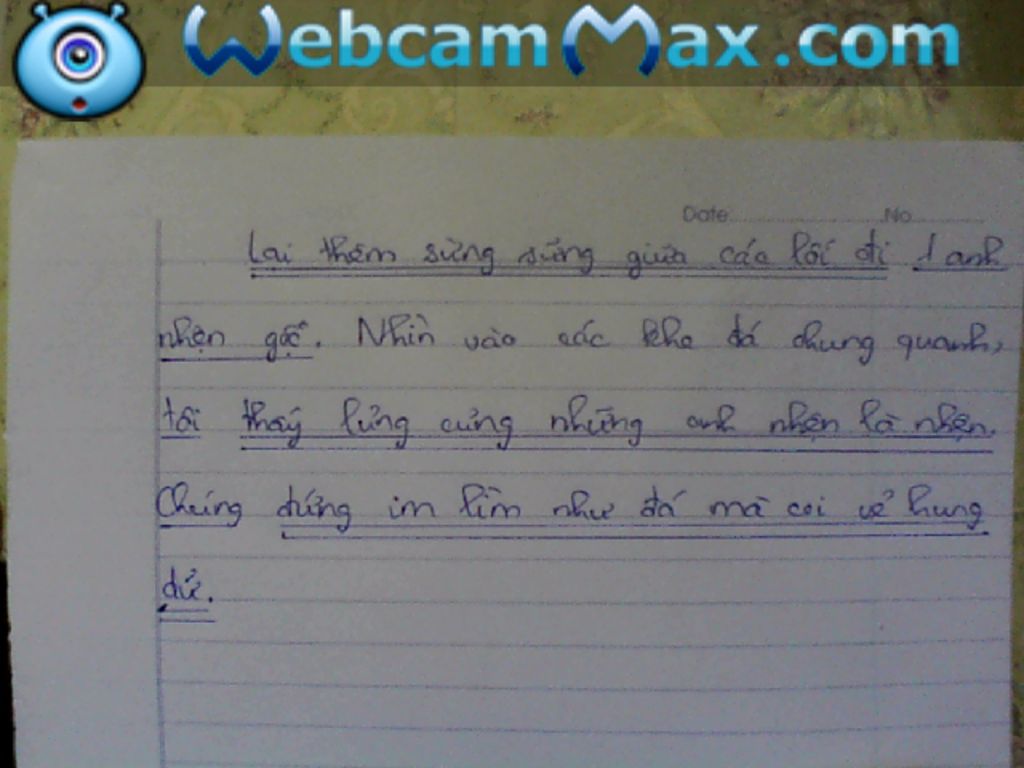 WebcamMax.com
Date No
Lại thêm sừng sững giữa các lối đi 1 anh
nhện gộc. Nhìn vào các khe đá chung quanh,
tôi thấy lủng củng những anh nhện là nhện.
Chúng đứng im lìm như đá mà coi vẻ hung
dữ.